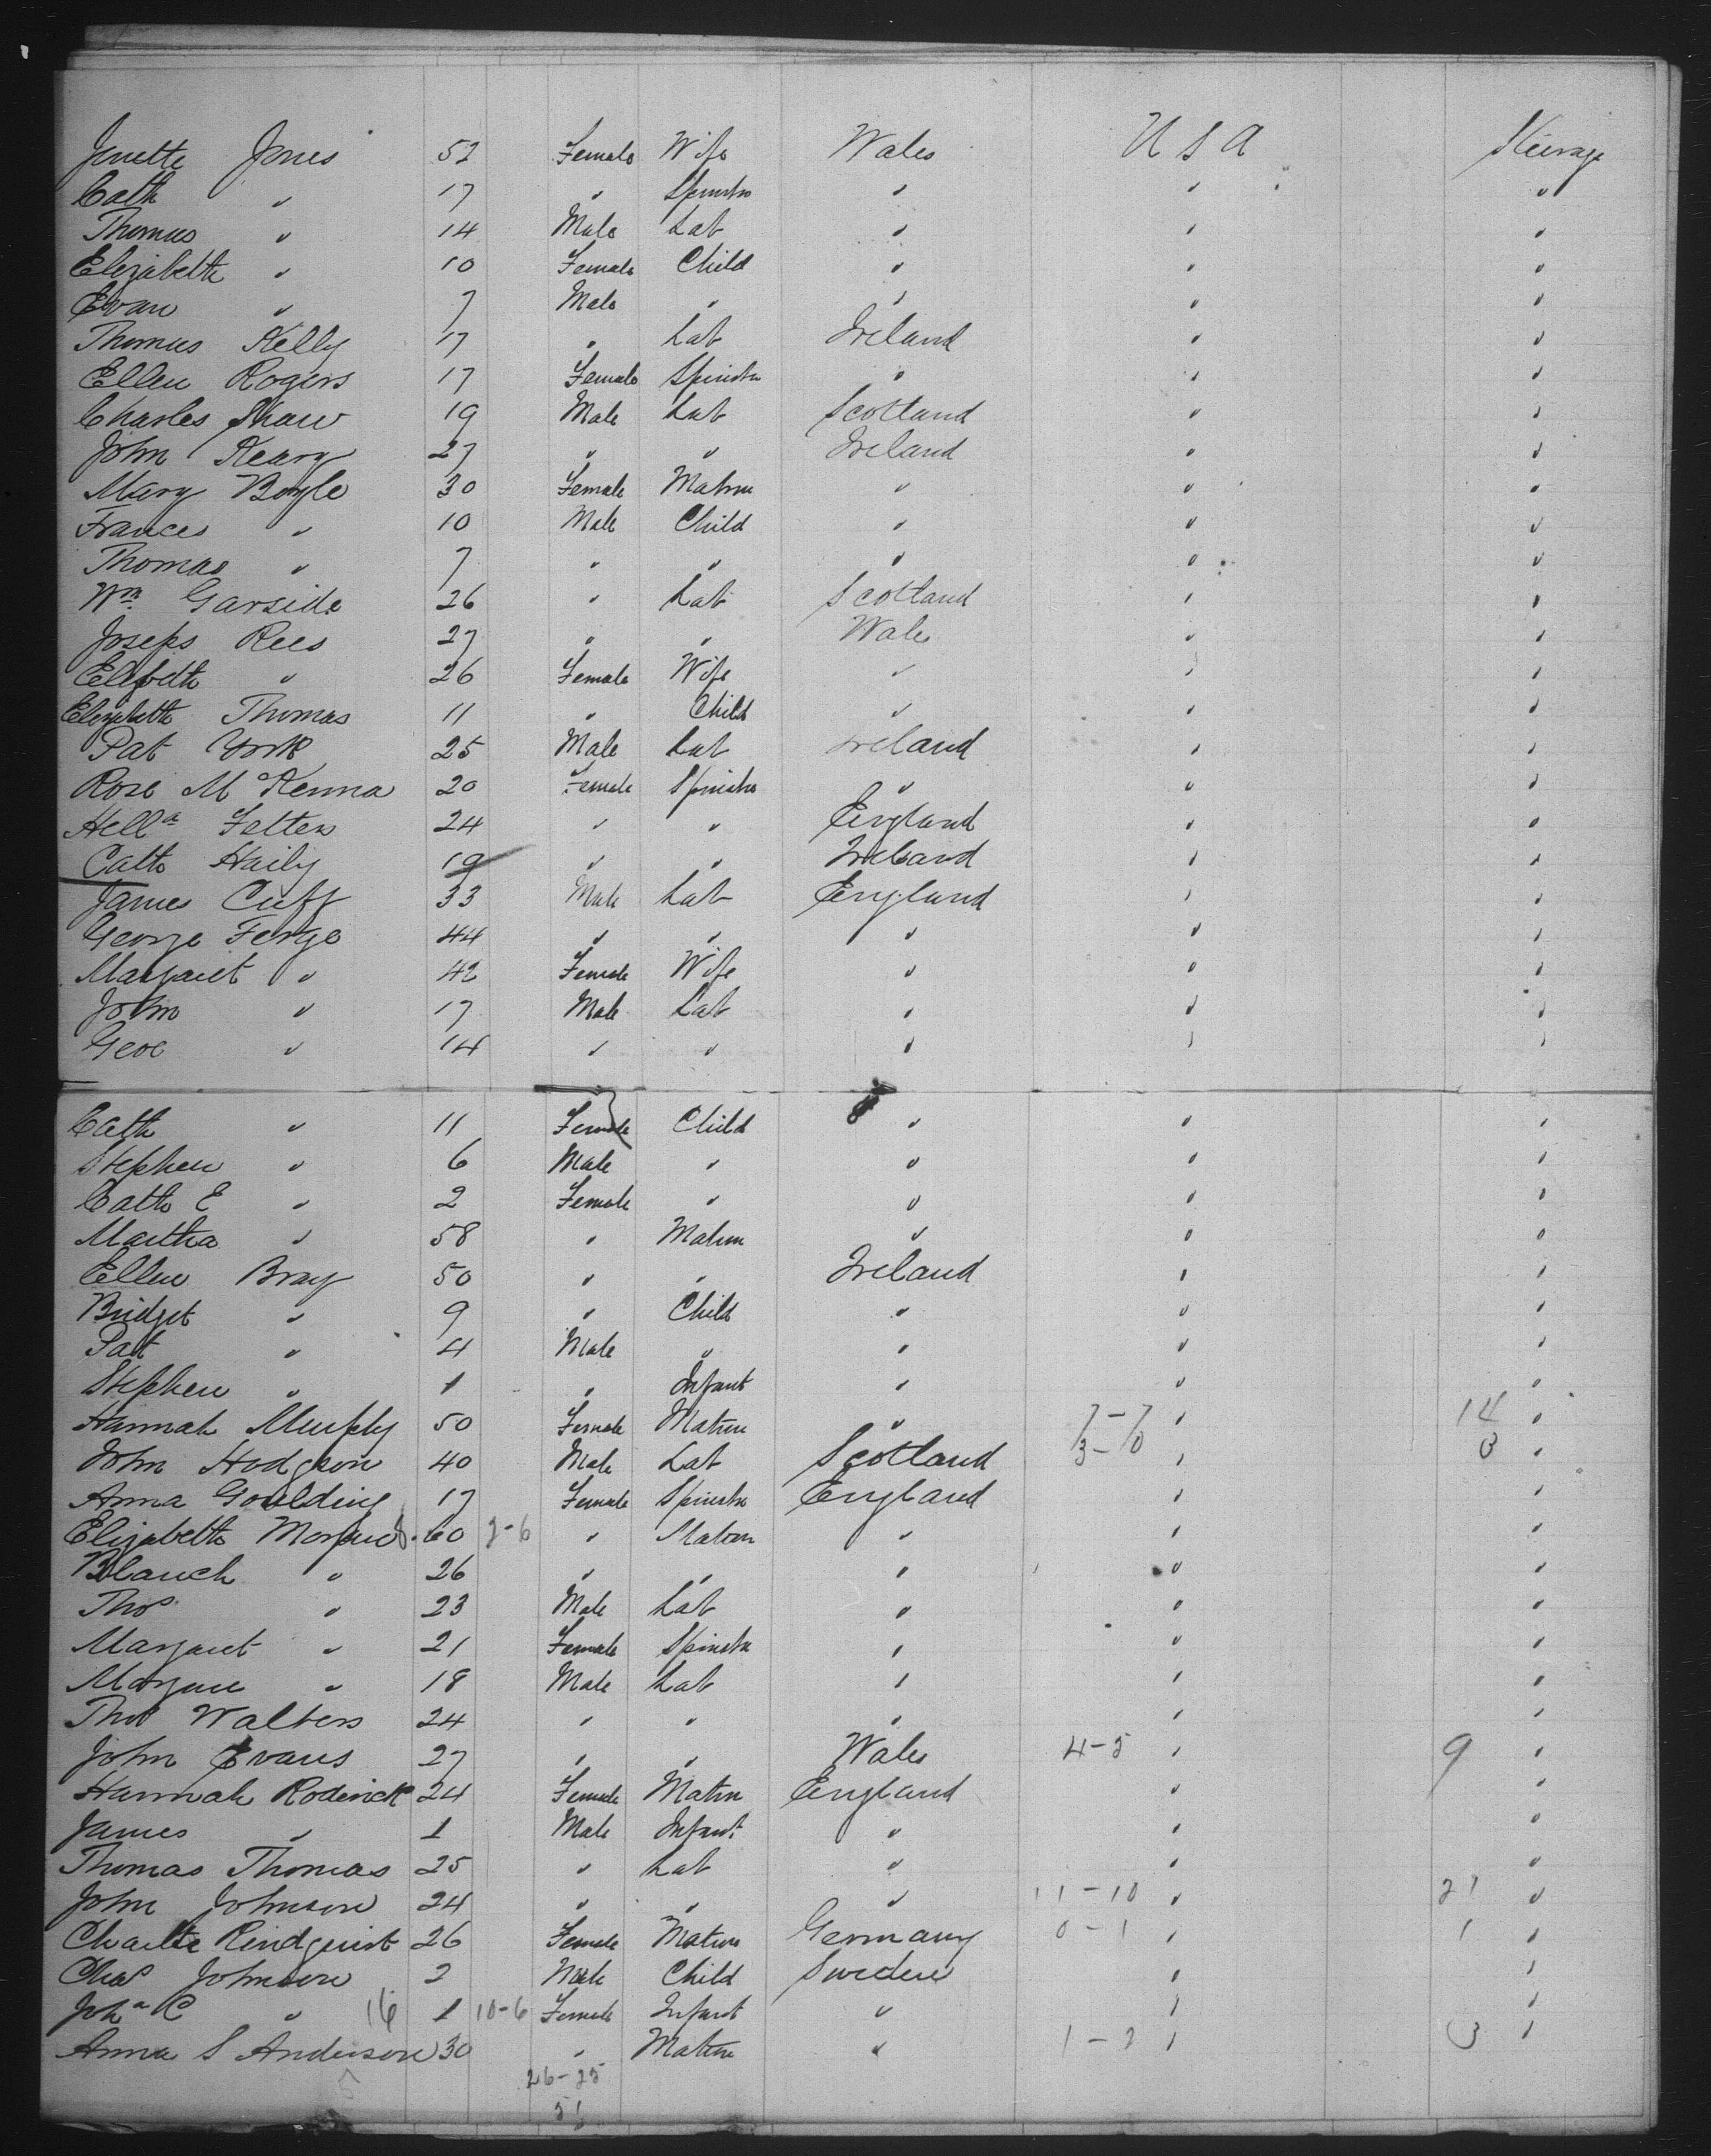 Jenette Jones 52 Female Wife Wales U S A Steerage
Cath " 17 " Spinster " " "
Thomas " 14 Male Lab " " "
Elizabeth " 10 Female Child " " "
Evan " 7 Male " " " "
Thomas Kelly 17 " Lab Ireland " "
Ellen Rogers 17 Female Spinster " " "
Charles Shaw 19 Male Lab Scotland " "
John Keary 27 " " Ireland " "
Mary Boyle 30 Female Matron " " "
Frances " 10 Male Child " " "
Thomas " 7 " " " " "
Wm. Garside 26 " Lab Scotland " "
Joseps Rees 27 " " Wales " "
" 26 Female Wife " " "
Elizabeth Thomas 11 " Child " " "
Pat York 25 Male Lab Ireland " "
Rose McKenna 20 Female Spinster " " "
24 " " England " "
Cath Haily 19 " " Ireland " "
James Cuff 33 Male Lab England " "
George Fergo 44 " " " " "
Margaret " 42 Female Wife " " "
John " 17 Male Lab " " "
Geoe " 14 " " " " "
Cath " 11 Female Child " " "
Stephen " 6 Male " " " "
Cath E " 2 Female " " " "
Martha " 58 " Matron " " "
Ellen Bray 50 " " Ireland " "
Bridget " 9 " Child " " "
Pat " 4 Male " " " "
Stephen " 1 " Infant " " "
Hannah Murphy 50 Female Matron " 7-7 " 14 "
John Hodgson 40 Male Lab Scotland 3-0 " 3 "
Anna Goulding 17 Female Spinster England " "
Elizabeth 60 2-6 " Matron " " "
Blanch " 26 " " " " "
Thos " 23 Male Lab " " "
Margaret " 21 Female Spinster " " "
Morgan " 18 Male Lab " " "
Thos Walters 24 " " " " "
John Evans 27 " " Wales 4-5 " 9 "
Hannah Roderick 24 Female Matron England " "
James " 1 Male Infant " " "
Thomas Thomas 25 " Lab " " "
John Johnson 24 " " " 11-10 " 21 "
Rindquist 26 Female Matron Germany 0-1 " 1 "
Chas Johnson 2 Male Child Sweden " "
Joha C " 16 1 10-6 Female Infant " " "
Anna S Anderson 30 " Matron " 1-2 " 3 "
26-25
51